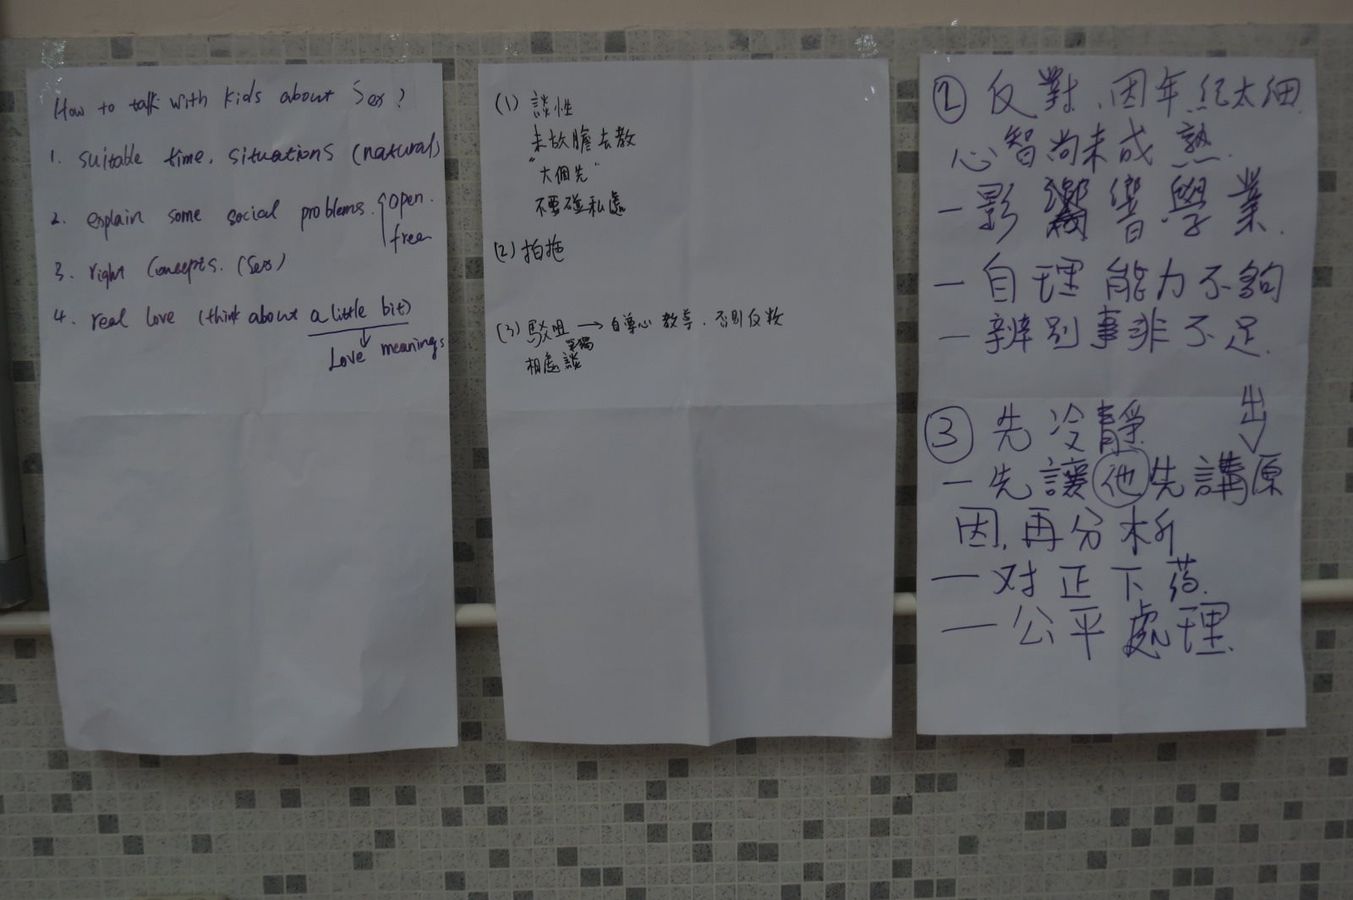 How to talk with kids about Sex?
1. suitable time, situations (natural)
2. explain some social problems. open.
free
3. right Concepts. (Sex)
4. real love (think about a little bit)
Love meanings
(1) 談性
未放膽去教
"大個先"
不要碰私處
(2) 拍拖
(3) 駁咀 → 自尊心 教導. 否則反教
單獨
相處談
② 反對、因年紀太細
心智尚未成熟.
一影響學業.
一自理能力不夠
一辨別事非不足.
③ 先冷靜
出
一先讓他先講原
因,再分析
一对正下药.
一公平處理.